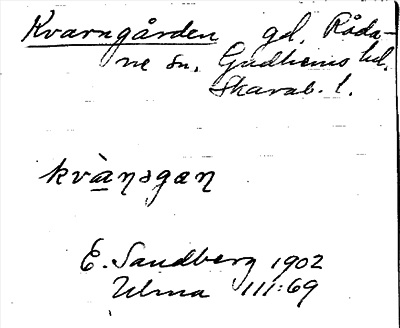 Kvarngården gd. Råda-
ne sn. Gudhems hd.
Skarab. l.
kvànsgan
E. Sandberg 1902
Ulma 111:69